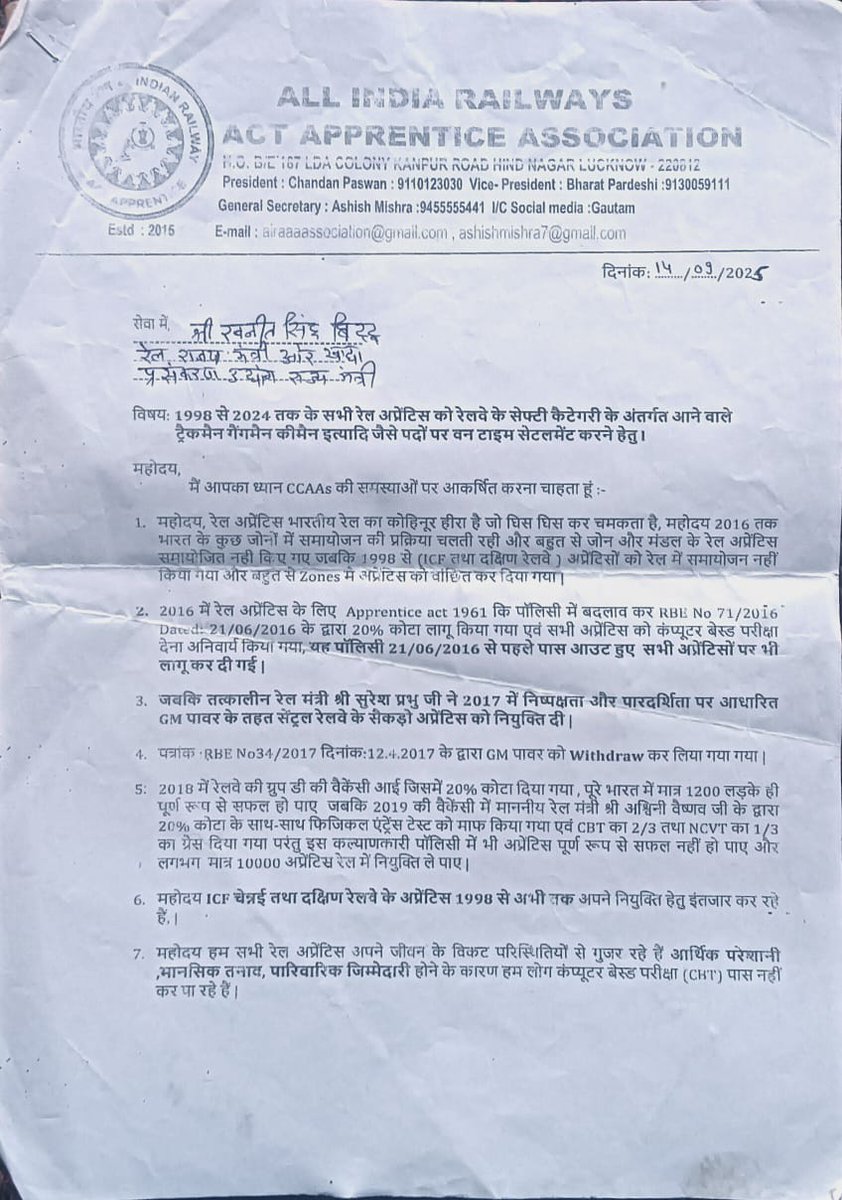 INDIAN RAILWAY
APPRENT
ALL INDIA RAILWAYS
ACT APPRENTICE ASSOCIATION
H.O. D/E 167 LDA COLONY KANPUR ROAD HIND NAGAR LUCKNOW - 220812
President : Chandan Paswan : 9110123030 Vice- President : Bharat Pardeshi :9130059111
General Secretary : Ashish Mishra :9455555441 I/C Social media :Gautam
Estd : 2015
E-mail : airaaaassociation@gmail.com , ashishmishra7@gmail.com
दिनांक: 14/09/2025
सेवा में, श्री रवनीत सिंह बिट्टू
रेल राज्य मंत्री और खाद्य
प्रसंस्करण उद्योग राज्य मंत्री
विषय: 1998 से 2024 तक के सभी रेल अप्रेंटिस को रेलवे के सेफ्टी कैटेगरी के अंतर्गत आने वाले
ट्रैकमैन गैंगमैन कीमैन इत्यादि जैसे पदों पर वन टाइम सेटलमेंट करने हेतु।
महोदय,
मैं आपका ध्यान CCAAs की समस्याओं पर आकर्षित करना चाहता हूं :-
1. महोदय, रेल अप्रेंटिस भारतीय रेल का कोहिनूर हीरा है जो घिस घिस कर चमकता है, महोदय 2016 तक
भारत के कुछ जोनों में समायोजन की प्रक्रिया चलती रही और बहुत से जोन और मंडल के रेल अप्रेंटिस
समायोजित नही किए गए जबकि 1998 से (ICF तथा दक्षिण रेलवे ) अप्रेंटिसों को रेल में समायोजन नहीं
किया गया और बहुत से Zones में अप्रेंटिस को वांछित कर दिया गया|
2. 2016 में रेल अप्रेंटिस के लिए Apprentice act 1961 कि पॉलिसी में बदलाव कर RBE No 71/2016
Dated: 21/06/2016 के द्वारा 20% कोटा लागू किया गया एवं सभी अप्रेंटिस को कंप्यूटर बेस्ड परीक्षा
देना अनिवार्य किया गया, यह पॉलिसी 21/06/2016 से पहले पास आउट हुए सभी अप्रेंटिसों पर भी
लागू कर दी गई|
3. जबकि तत्कालीन रेल मंत्री श्री सुरेश प्रभु जी ने 2017 में निष्पक्षता और पारदर्शिता पर आधारित
GM पावर के तहत सेंट्रल रेलवे के सैकड़ो अप्रेंटिस को नियुक्ति दी|
4. पत्रांक :RBE No34/2017 दिनांक:12.4.2017 के द्वारा GM पावर को Withdraw कर लिया गया गया|
5: 2018 में रेलवे की ग्रुप डी की वैकेंसी आई जिसमें 20% कोटा दिया गया , पूरे भारत में मात्र 1200 लड़के ही
पूर्ण रूप से सफल हो पाए जबकि 2019 की वैकेंसी में माननीय रेल मंत्री श्री अश्विनी वैष्णव जी के द्वारा
20% कोटा के साथ-साथ फिजिकल एंट्रेंस टेस्ट को माफ किया गया एवं CBT का 2/3 तथा NCVT का 1/3
का ग्रेस दिया गया परंतु इस कल्याणकारी पॉलिसी में भी अप्रेंटिस पूर्ण रूप से सफल नहीं हो पाए और
लगभग मात्र 10000 अप्रेंटिस रेल में नियुक्ति ले पाए|
6. महोदय ICF चेन्नई तथा दक्षिण रेलवे के अप्रेंटिस 1998 से अभी तक अपने नियुक्ति हेतु इंतजार कर रहे
हैं.|
7. महोदय हम सभी रेल अप्रेंटिस अपने जीवन के विकट परिस्थितियों से गुजर रहे हैं आर्थिक परेशानी
,मानसिक तनाव, पारिवारिक जिम्मेदारी होने के कारण हम लोग कंप्यूटर बेस्ड परीक्षा (CBT) पास नहीं
कर पा रहे हैं|